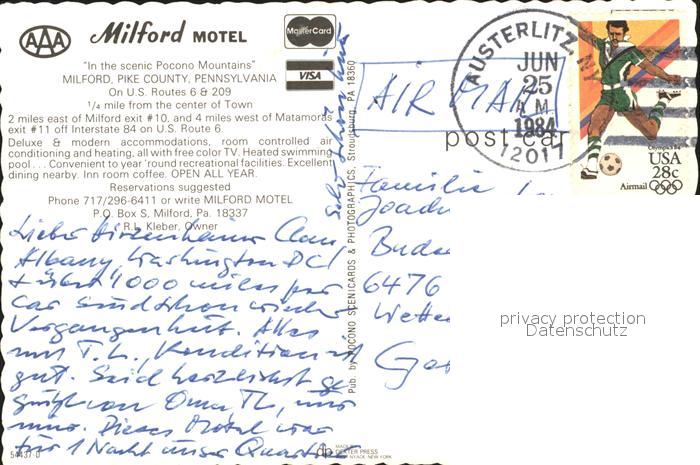 AAA Milford MOTEL
MasterCard
VISA
"In the scenic Pocono Mountains"
MILFORD, PIKE COUNTY, PENNSYLVANIA
On U.S. Routes 6 & 209
1/4 mile from the center of Town
2 miles east of Milford exit #10, and 4 miles west of Matamoras
exit #11 off Interstate 84 on U.S. Route 6.
Deluxe & modern accommodations, room controlled air
conditioning and heating, all with free color TV. Heated swimming
pool . . . Convenient to year 'round recreational facilities. Excellent
dining nearby. Inn room coffee. OPEN ALL YEAR.
Reservations suggested
Phone 717/296-6411 or write MILFORD MOTEL
P.O. Box S, Milford, Pa. 18337
R.L. Kleber, Owner
Lieber
Albany Washington DC
+ über 4000 miles per
Car sind schon wieder
Vergangenheit. Alles
mit T. L., Kondition ist
gut. Seid herzlichst ge
grüßt von Oma
Dieses Motel war
für 1 Nacht unser Quartier
54437-D
Pub. by POCONO SCENICARDS & PHOTOGRAPHICS, Stroudsburg, PA 18360
DEXTER PRESS
WEST NYACK, NEW YORK
AIR MAIL
post car
AUSTERLITZ, NY
JUN
25
AM
1984
12017
Olympics 84
USA
28c
Airmail
Familie
Joach
6476
privacy protection
Datenschutz